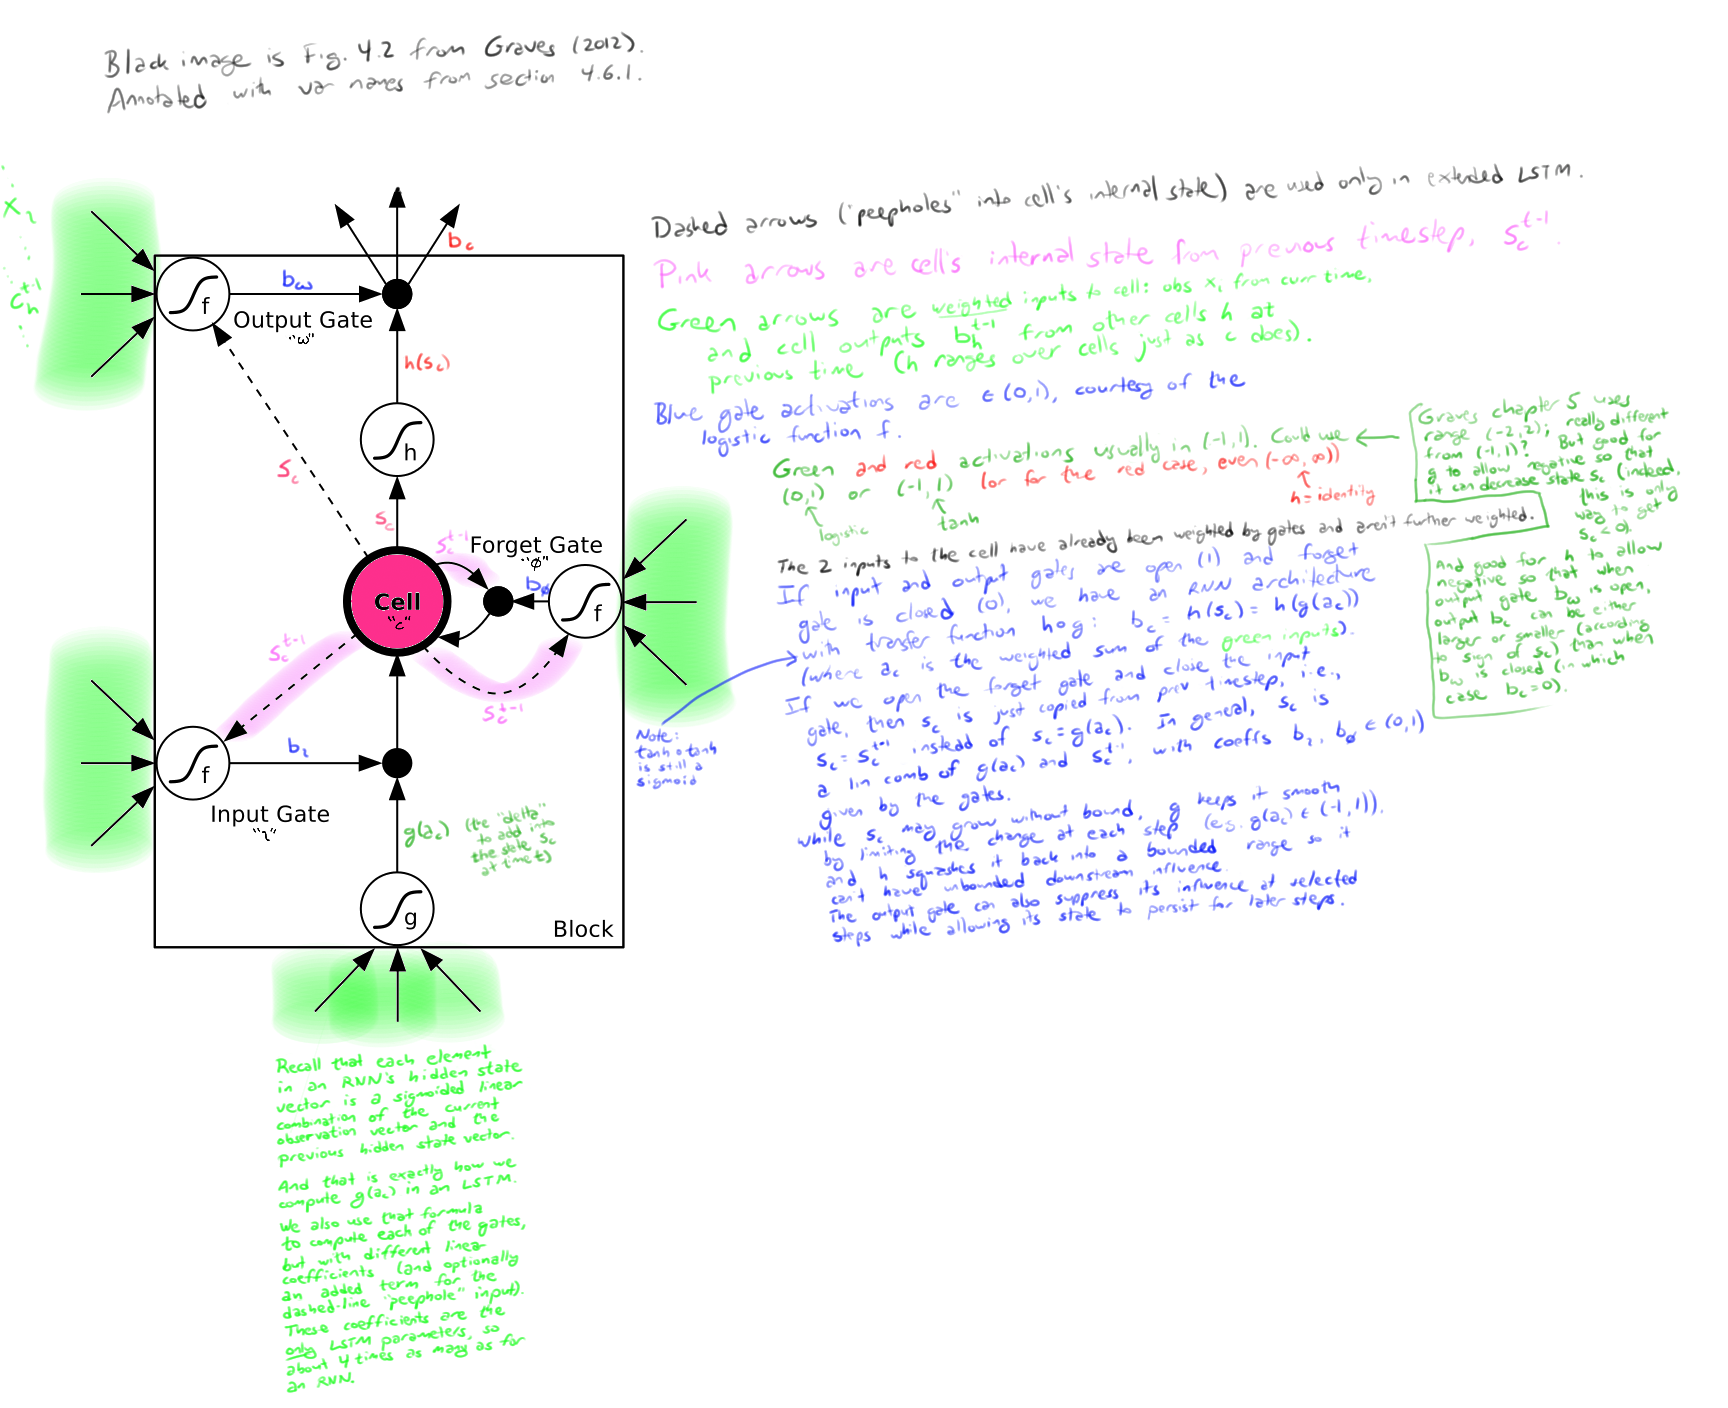 Black image is Fig. 4.2 from Graves (2012).
Annotated with var names from section 4.6.1.
x₁
c_h^{t-1}
b_ω
b_c
f
Output Gate
"ω"
h(s_c)
h
s_c
s_c
s_c^{t-1}
Forget Gate
"φ"
b_φ
f
Cell
"c"
s_c^{t-1}
s_c^{t-1}
f
b_ι
Input Gate
"ι"
g(a_c) (the "delta"
to add into
the state s_c
at time t)
g
Block
Dashed arrows ("peepholes" into cell's internal state) are used only in extended LSTM.
Pink arrows are cell's internal state from previous timestep, s_c^{t-1}.
Green arrows are weighted inputs to cell: obs x₁ from curr time,
and cell outputs b_h^{t-1} from other cells h at
previous time (h ranges over cells just as c does).
Blue gate activations are ∈ (0,1), courtesy of the
logistic function f.
Green and red activations usually in (-1,1). Could use
(0,1) or (-1,1) (or for the red case, even (-∞,∞))
logistic
tanh
h = identity
Graves chapter 5 uses
range (-2,2); really different
from (-1,1)? But good for
g to allow negative so that
it can decrease state s_c (indeed,
this is only
way to get
s_c < 0).
And good for h to allow
negative so that when
output gate b_ω is open,
output b_c can be either
larger or smaller (according
to sign of s_c) than when
b_ω is closed (in which
case b_c = 0).
The 2 inputs to the cell have already been weighted by gates and aren't further weighted.
If input and output gates are open (1) and forget
gate is closed (0), we have an RNN architecture
with transfer function h∘g: b_c = h(s_c) = h(g(a_c))
(where a_c is the weighted sum of the green inputs).
If we open the forget gate and close the input
gate, then s_c is just copied from prev timestep, i.e.,
s_c = s_c^{t-1} instead of s_c = g(a_c). In general, s_c is
a lin comb of g(a_c) and s_c^{t-1}, with coeffs b_ι, b_φ ∈ (0,1)
given by the gates.
While s_c may grow without bound, g keeps it smooth
by limiting the change at each step (e.g. g(a_c) ∈ (-1,1)).
and h squashes it back into a bounded range so it
can't have unbounded downstream influence.
The output gate can also suppress its influence at selected
steps while allowing its state to persist for later steps.
Note:
tanh∘tanh
is still a
sigmoid
Recall that each element
in an RNN's hidden state
vector is a sigmoided linear
combination of the current
observation vector and the
previous hidden state vector.
And that is exactly how we
compute g(a_c) in an LSTM.
We also use that formula
to compute each of the gates,
but with different linear
coefficients (and optionally
an added term for the
dashed-line "peephole" input).
These coefficients are the
only LSTM parameters, so
about 4 times as many as for
an RNN.